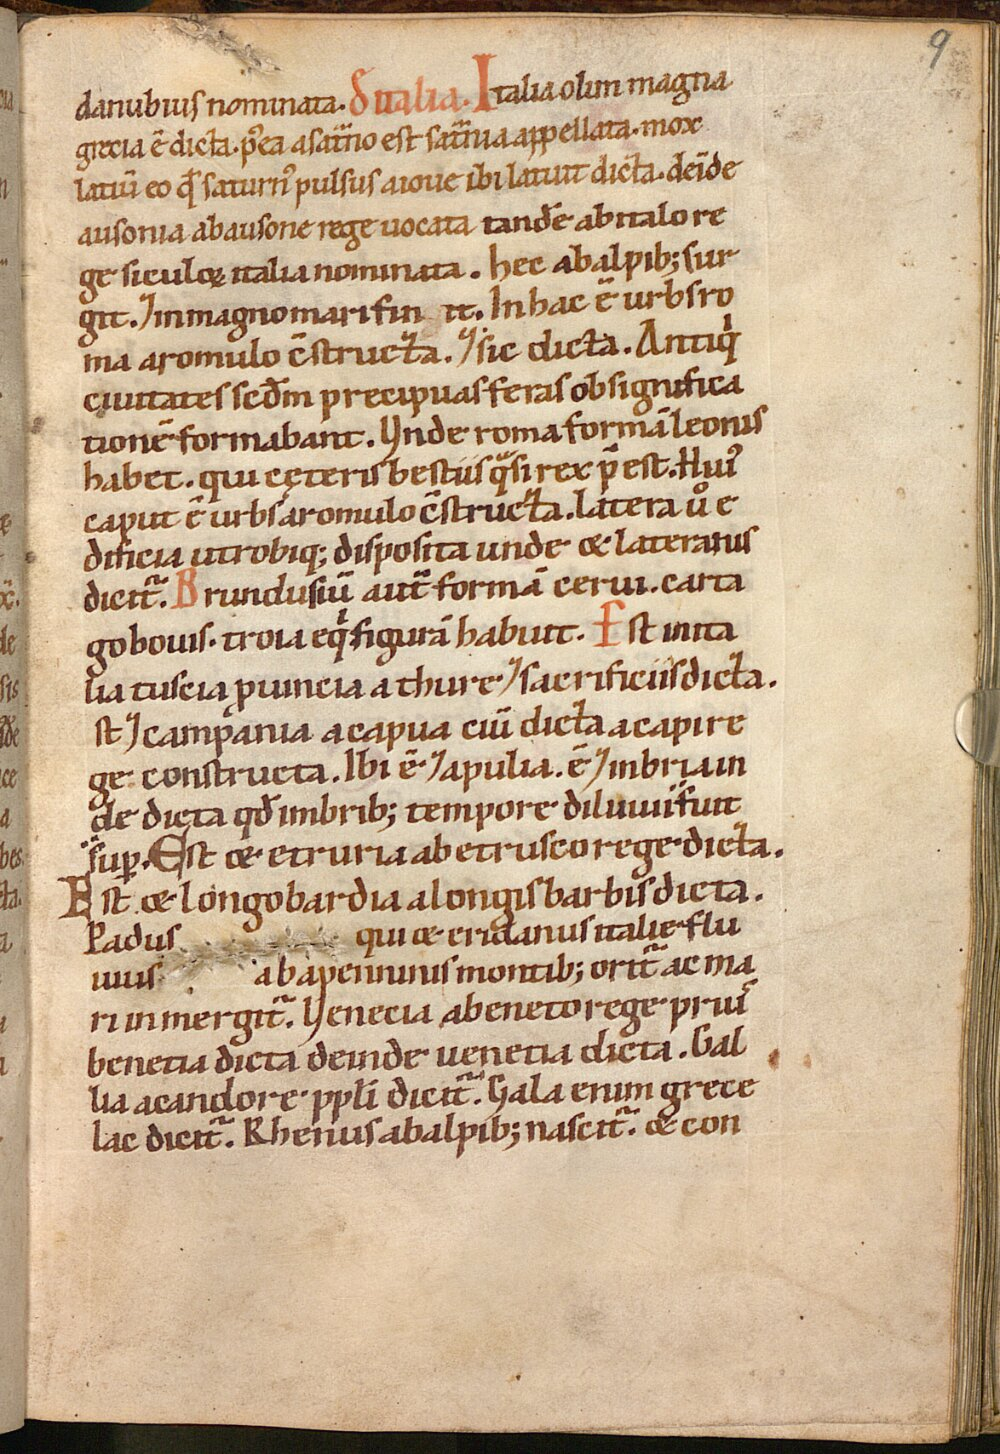 9
danubius nominata. δ italia. Italia olim magna
grecia ē dicta. p̃ea a sat̃no est sat̃nia appellata. mox
latiū eo qđ saturnꝰ pulsus a ioue ibi latuit dicta. deīde
ausonia ab ausone rege uocata tandē ab italo re
ge siculoꝝ italia nominata. hec ab alpib; sur
git. ⁊ in magno mari finit. In hac ē urbs ro
ma a romulo c̄structa. ⁊ sic dicta. Antiqͥ
ciuitates scđm precipuas feras ob significa
tionē formabant. Vnde roma formā leonis
habet. qui cęteris bestiis qͣsi rex p̄est. Huiꝰ
caput ē urbs a romulo c̄structa. Latera uͦ e
dificia utrobiq; disposita unde & lateranis
dicit᷑. Brundusiū aut̄ formā cerui. carta
go bouis. troia eqͥ figurā habuit. Est in ita
lia tuscia ꝓuincia a thure ⁊ sacrificiis dicta.
st ⁊ campania a capua ciū dicta a capi re
ge constructa. Ibi ē ⁊ apulia. ē ⁊ imbria in
de dicta qđ imbrib; tempore diluuii fuit
sup̱. Est & etruria ab etrusco rege dicta.
Est & longobardia a longis barbis dicta.
Padus qui & eridanus italie flu
uius ab apenninis montib; orit᷑ ac ma
ri inmergit᷑. Venecia a beneto rege priuī
benetia dicta deinde uenetia dicta. Gal
lia a candore ppl̄i dicit᷑. Gala enim grece
lac dicit᷑. Rhenus ab alpib; nascit᷑. & con